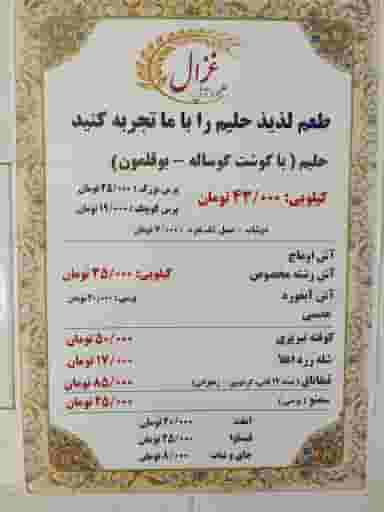 غزال
طعم لذیذ حلیم را با ما تجربه کنید
حلیم ( با گوشت گوساله - بوقلمون )
کیلویی: ۴۳/۰۰۰ تومان
پرس بزرگ: ۲۵/۰۰۰ تومان
پرس کوچک: ۱۹/۰۰۰ تومان
آش اوماج
آش رشته مخصوص
کیلویی: ۳۵/۰۰۰ تومان
آش آبغوره
پرسی: ۲۰/۰۰۰ تومان
عدسی
کوفته تبریزی ۵۰/۰۰۰ تومان
شله زرد اعلا ۱۷/۰۰۰ تومان
۸۵/۰۰۰ تومان
۲۵/۰۰۰ تومان
املت ۲۰/۰۰۰ تومان
۲۵/۰۰۰ تومان
چای و نبات ۸/۰۰۰ تومان